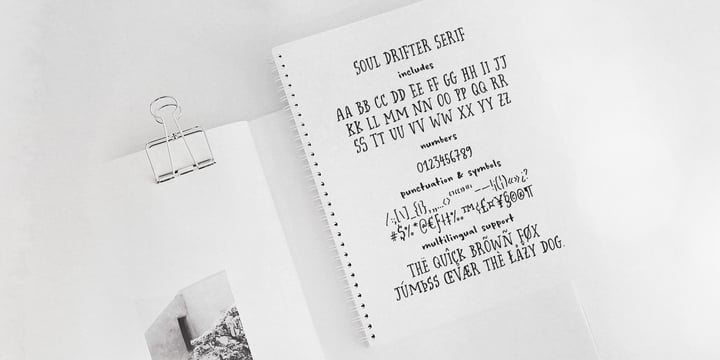 SOUL DRIFTER SERIF
includes
AA BB CC DD EE FF GG HH II JJ
KK LL MM NN OO PP QQ RR
SS TT UU VV WW XX YY ZZ
numbers
0123456789
punctuation & symbols
multilingual support
THË QUÎÇK BRÕWÑ FØX
JÚMÞSS ŒVÆR THË ŁÀŽY DOG.